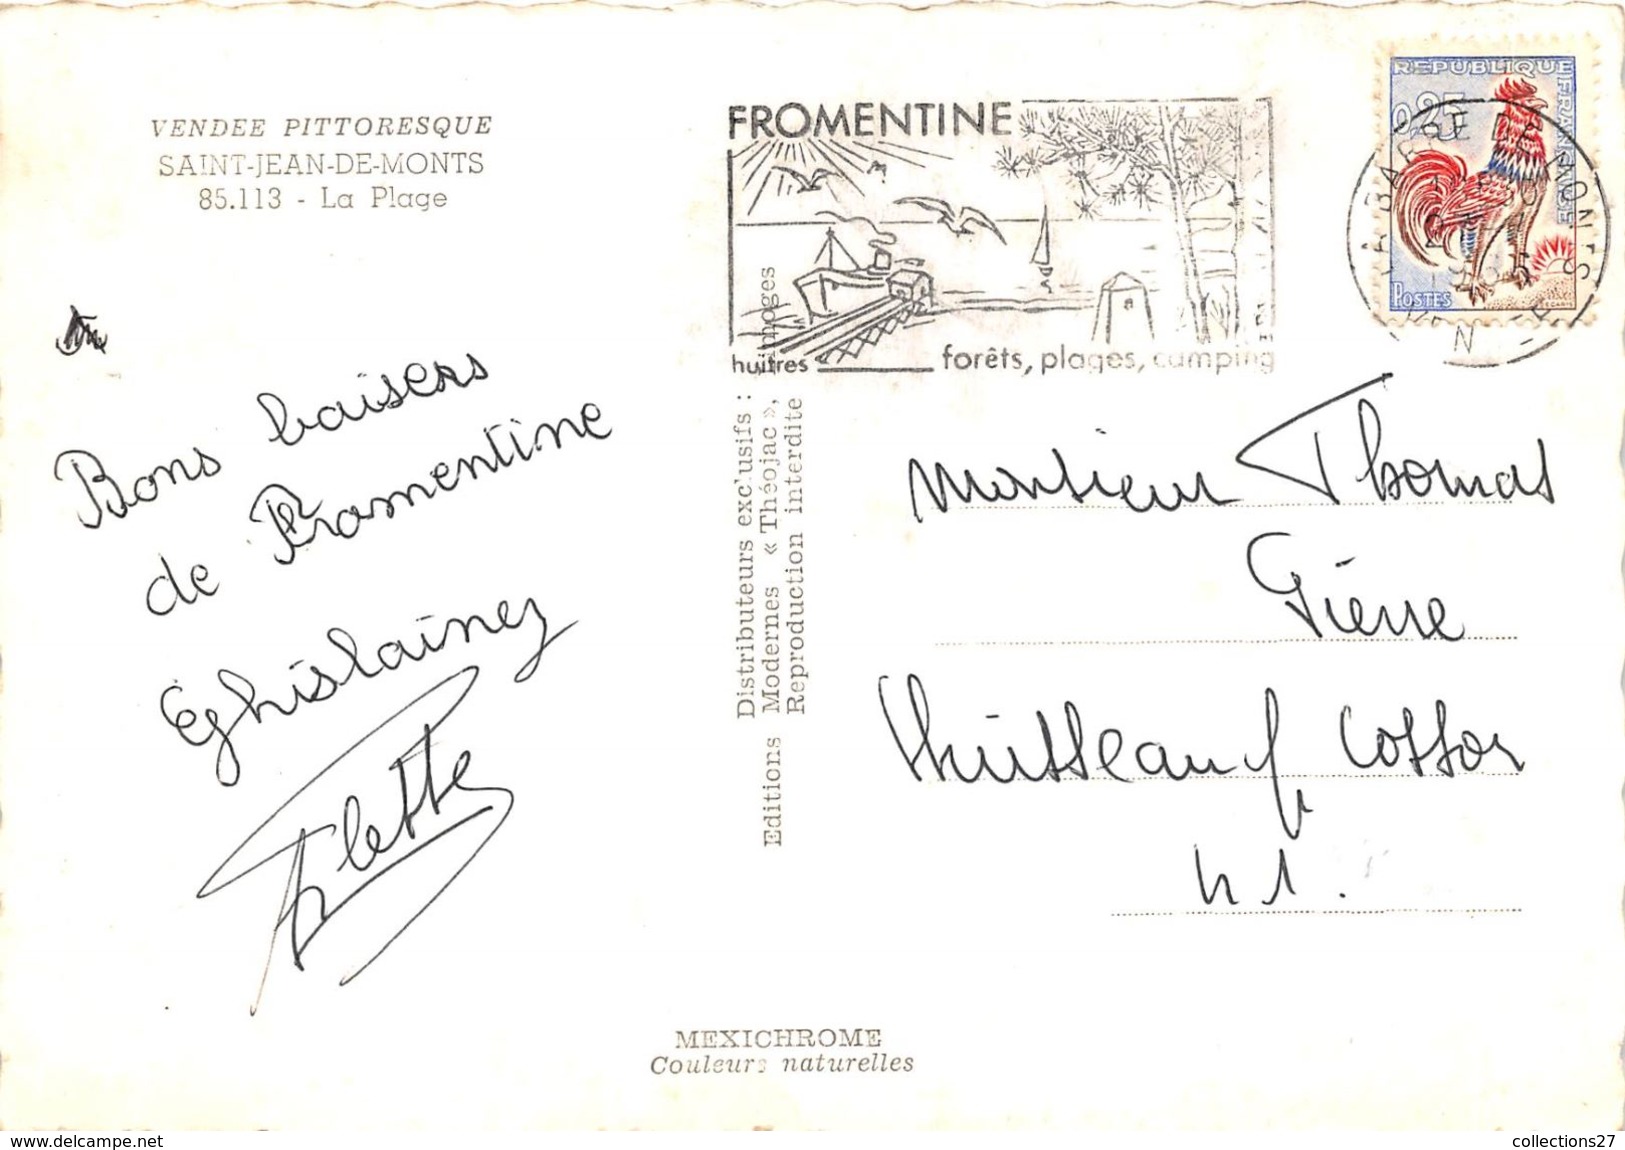 VENDEE PITTORESQUE
SAINT-JEAN-DE-MONTS
85.113 - La Plage
Bons baisers
de Fromentine
Ghislaine
Arlette
FROMENTINE
huîtres
forêts, plages, camping
REPUBLIQUE
FRANÇAISE
0,25
POSTES
LA BARRE DE MONTS
VENDEE
Distributeurs exclusifs :
Editions Modernes « Théojac », Limoges
Reproduction interdite
Monsieur Thomas
Pierre
n 1.
MEXICHROME
Couleurs naturelles
www.delcampe.net
collections27